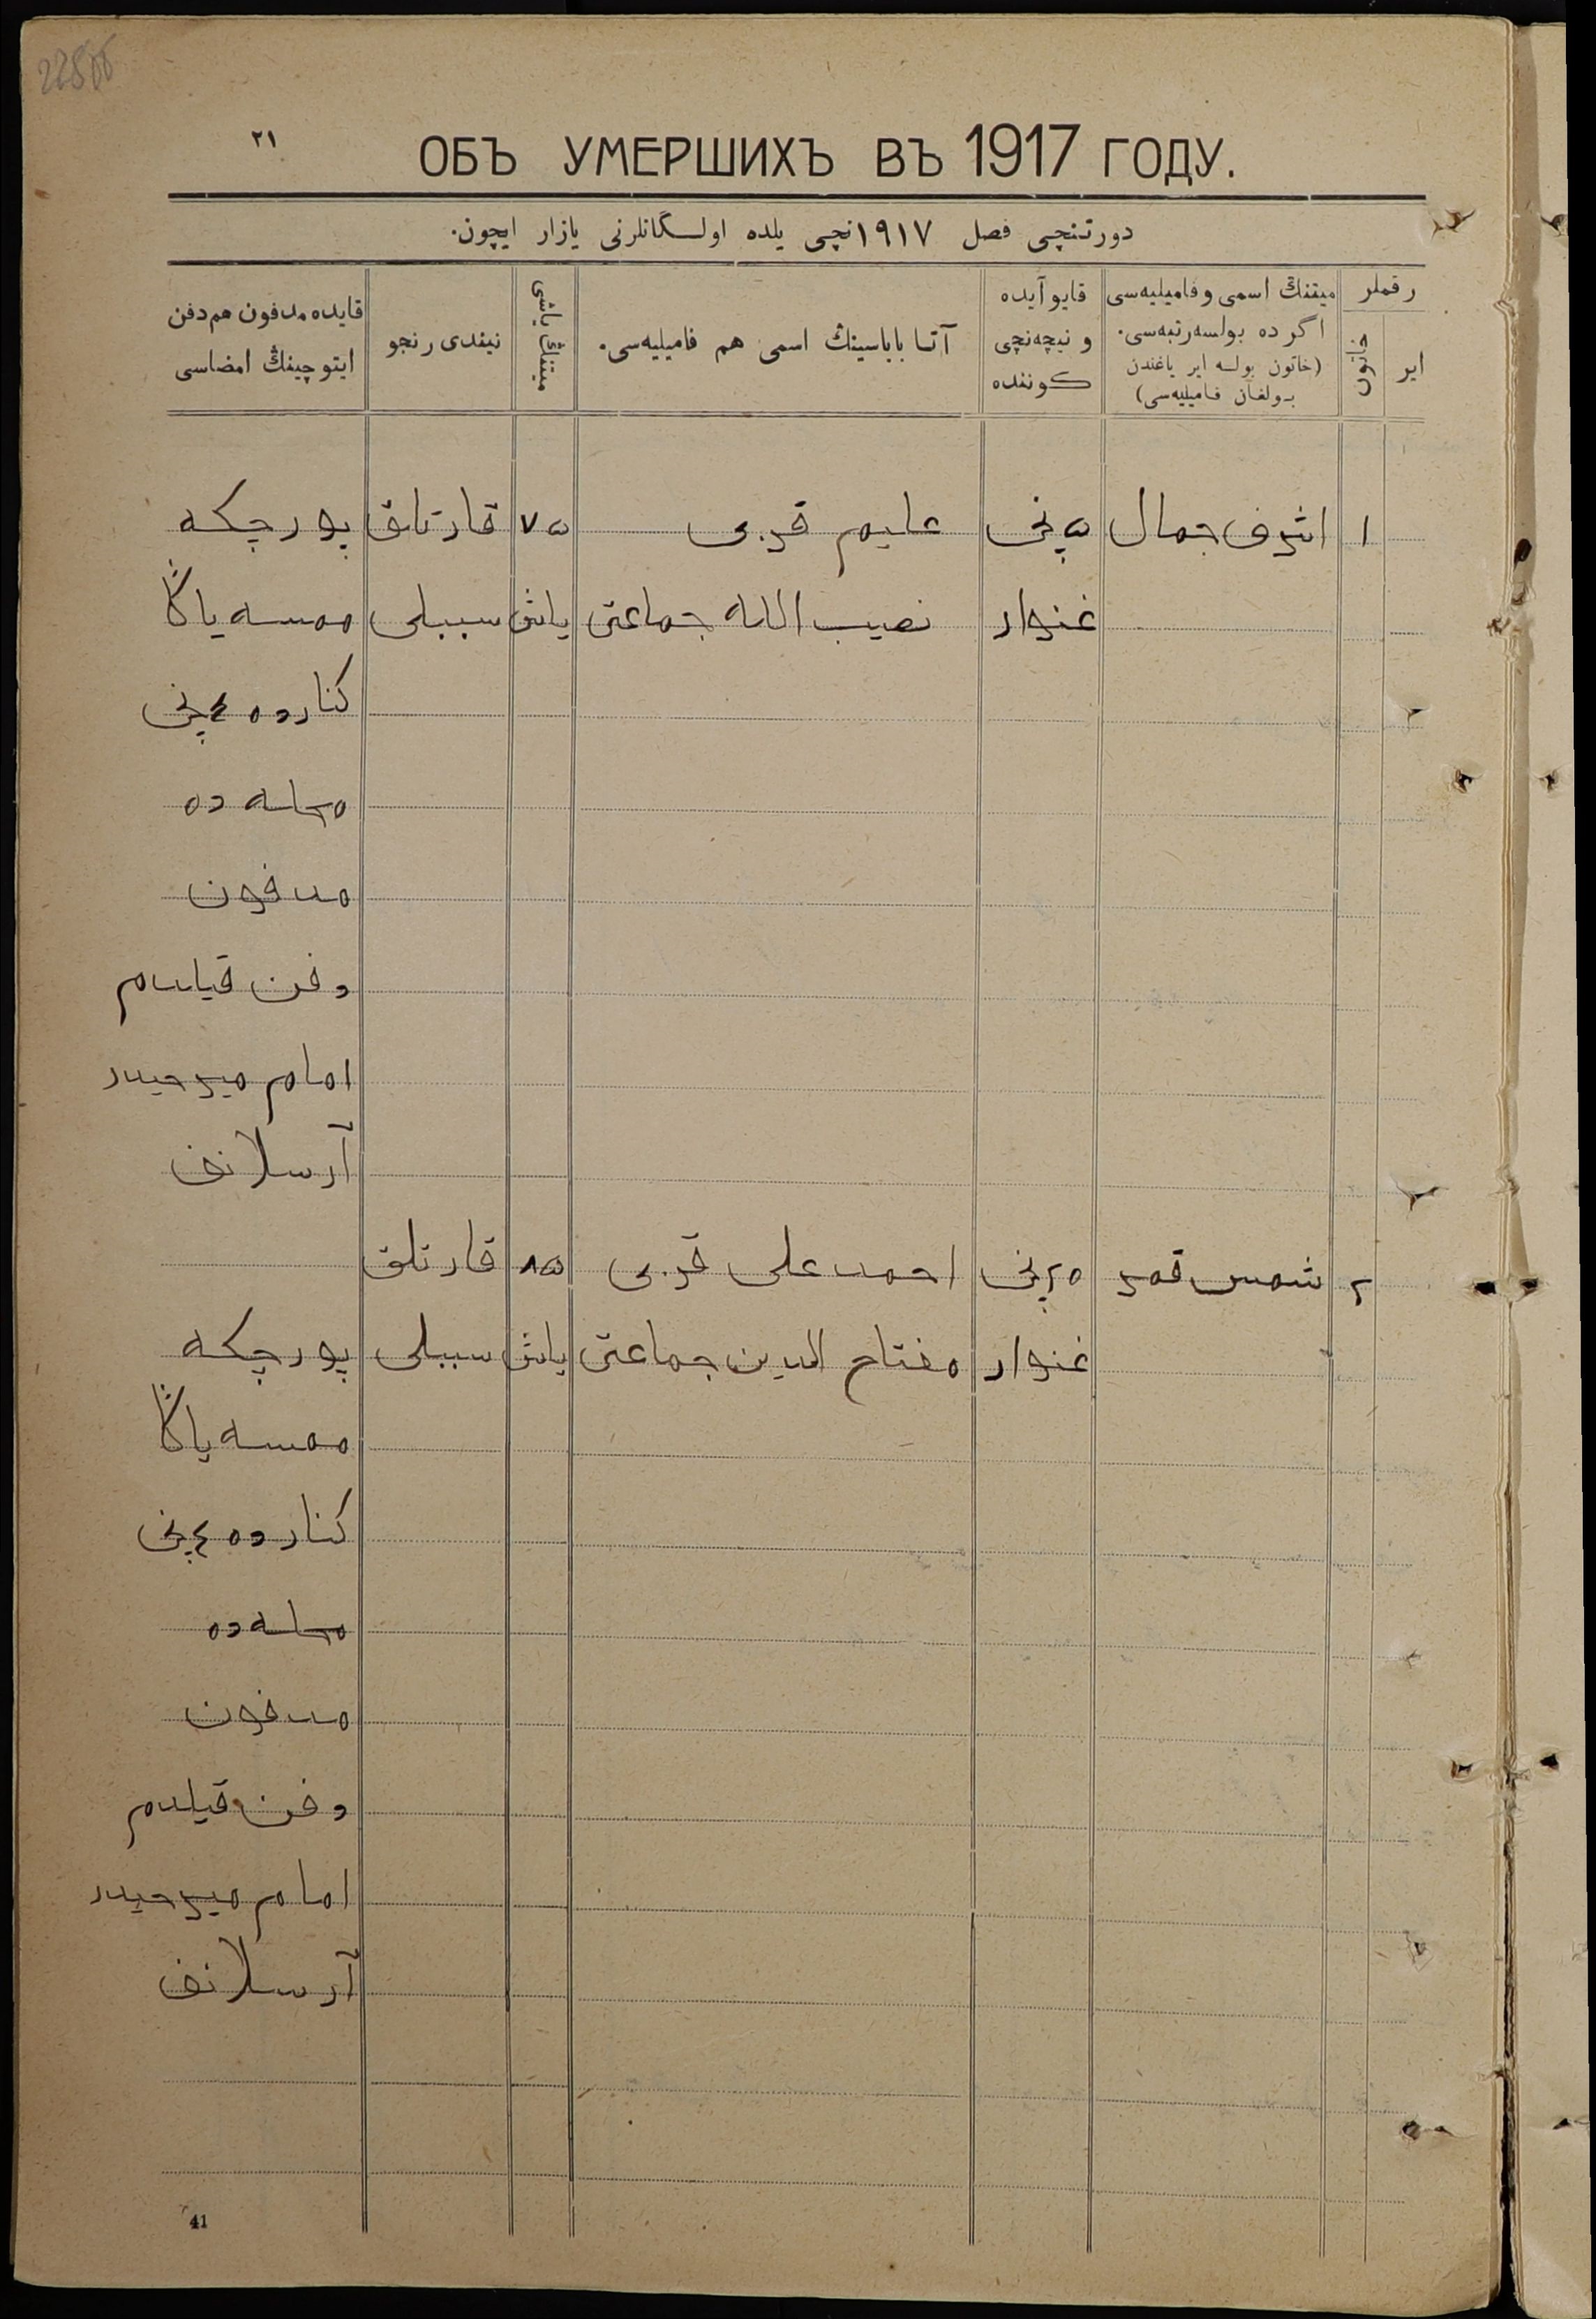 ۲۱
ОБЪ УМЕРШИХЪ ВЪ 1917 ГОДУ.
دورتنچی فصل ۱۹۱۷نچی یلده اولـگانلرنی یازار ایچون.
رقملر
ایر
خاتون
میتنڭ اسمی و فامیلیه‌سی
اگر ده بولسه رتبه‌سی.
(خاتون بولسه ایر یاغندن
بولغان فامیلیه‌سی)
قایو آیده
و نیچه‌نچی
کوننده
آتا باباسینڭ اسمی هم فامیلیه‌سی.
میتنڭ یاشی
نیندی رنجو
قایده مدفون هم دفن
ایتوچینڭ امضاسی
۱ اشرف جمال ۵ نچی علیم قربی ۷۵ قارتلق بورچکه
غنوار نصیب الله جماعتی یاش سببلی ممسه یاڭا
کنارده ۴ نچی
محله ده
مدفون
دفن قیلدم
امام میرحیدر
آرسلانف
۲ شمس قمر ۲۵ نچی احمد علی قربی ۸۵ قارتلق
غنوار مفتاح الدین جماعتی یاش سببلی بورچکه
ممسه یاڭا
کنارده ۴ نچی
محله ده
مدفون
دفن قیلدم
امام میرحیدر
آرسلانف
41